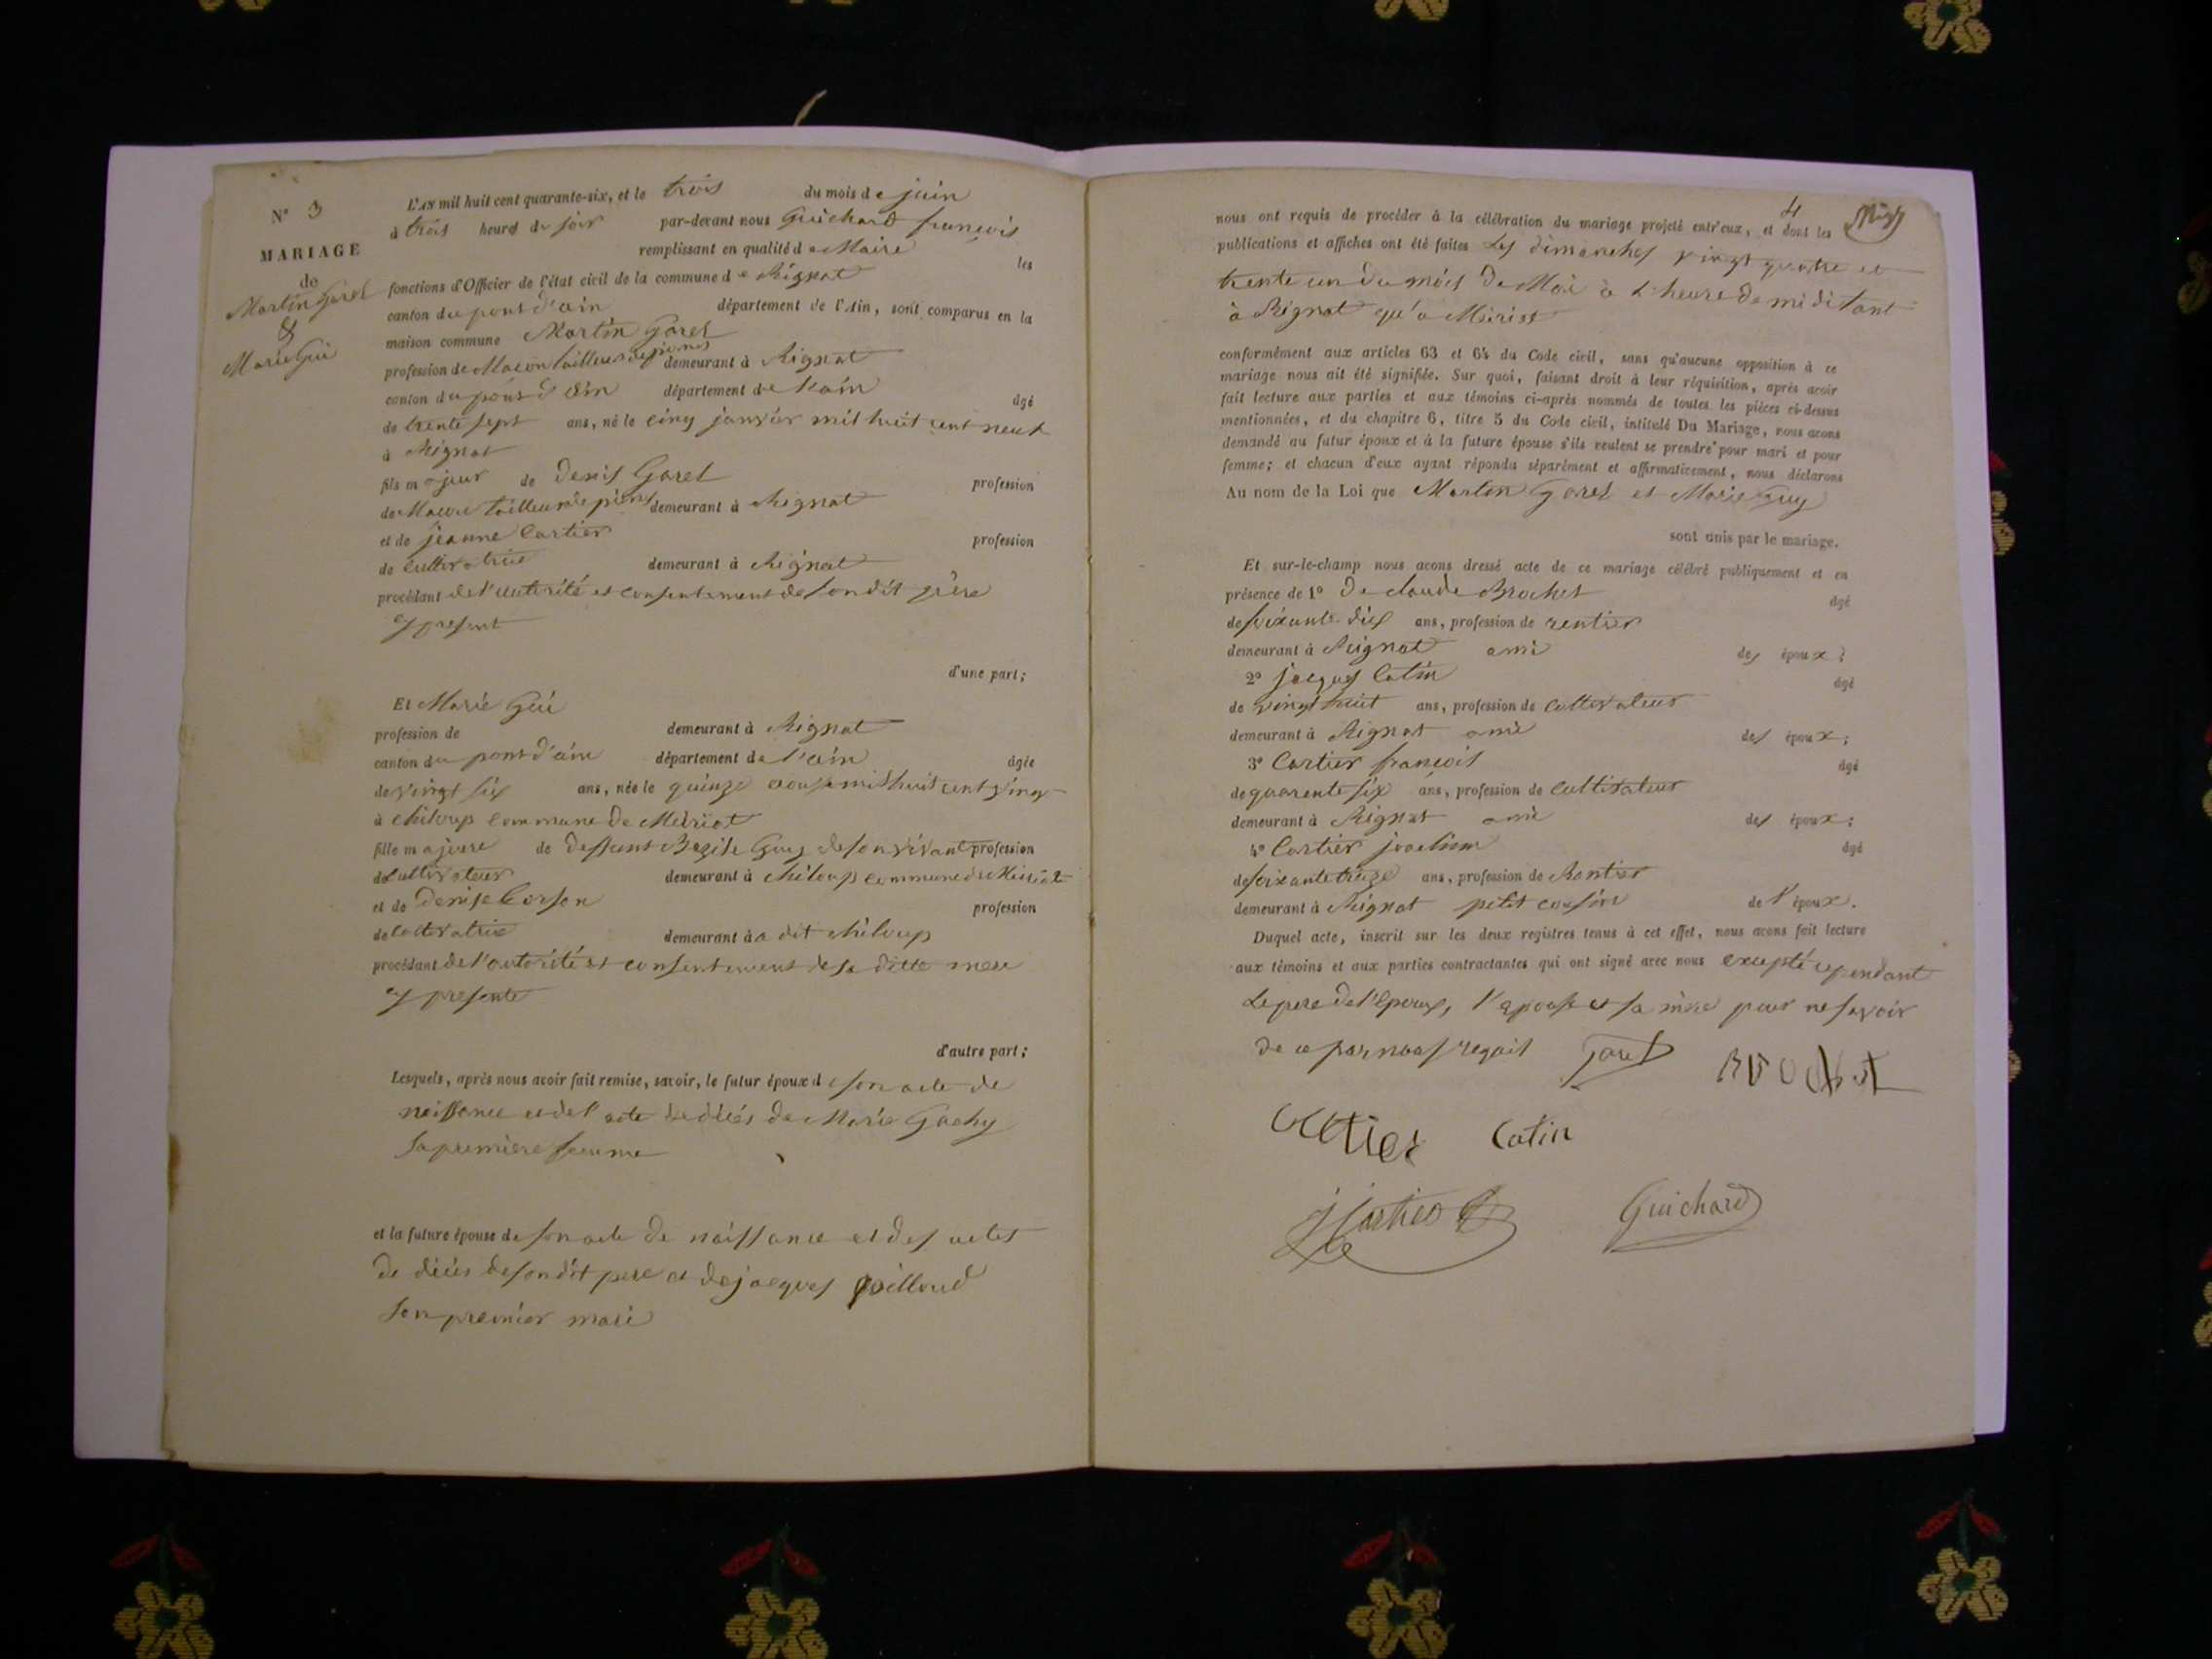 N° 3
MARIAGE
de
Martin Garel
&
Marie Gui
L'AN mil huit cent quarante-six, et le trois du mois de juin
à trois heures du soir par-devant nous Guichard françois
remplissant en qualité de Maire les
fonctions d'Officier de l'état civil de la commune de Rignat
canton du pont d'ain département de l'Ain, sont comparus en la
maison commune Martin Garel
profession de Macon tailleur de pierres demeurant à Rignat
canton du pont d'ain département de l'ain âgé
de trente sept ans, né le cinq janvier mil huit cent neuf
à Rignat
fils majeur de Denis Garel profession
de Macon tailleur de pierres demeurant à Rignat
et de jeanne Cartier profession
de cultivatrice demeurant à Rignat
procédant de l'autorité et consentement de son dit père
cy present
d'une part;
Et Marie Gui
profession de demeurant à Rignat
canton du pont d'ain département de l'ain âgée
de vingt six ans, née le quinze mil huit cent vingt
à chiloup commune de Meiriat
fille majeure de deffunt Guy de son vivant profession
de cultivateur demeurant à chiloup commune de Meiriat
et de Denise Corson profession
de cultivatrice demeurant à a dit chiloup
procédant de l'autorité et consentement de sa ditte mere
cy presente
d'autre part;
Lesquels, après nous avoir fait remise, savoir, le futur époux de son acte de
naissance et de l'acte de décés de Marie Gachy
sa premiere femme
et la future épouse de son acte de naissance et des actes
de décés de son dit pere et de jacques
son premier mari
4
nous ont requis de procéder à la célébration du mariage projeté entr'eux, et dont les
publications et affiches ont été faites Les dimanches vingt quatre et
trente un du mois de Mai à l'heure de midi tant
à Rignat qu'a Meiriat
conformément aux articles 63 et 64 du Code civil, sans qu'aucune opposition à ce
mariage nous ait été signifiée. Sur quoi, faisant droit à leur réquisition, après avoir
fait lecture aux parties et aux témoins ci-après nommés de toutes les pièces ci-dessus
mentionnées, et du chapitre 6, titre 5 du Code civil, intitulé Du Mariage, nous avons
demandé au futur époux et à la future épouse s'ils veulent se prendre pour mari et pour
femme; et chacun d'eux ayant répondu séparément et affirmativement, nous déclarons
Au nom de la Loi que Martin Garel et Marie Guy
sont unis par le mariage.
Et sur-le-champ nous avons dressé acte de ce mariage célébré publiquement et en
présence de 1° De claude Brochet âgé
de soixante dix ans, profession de rentier
demeurant à Rignat ami des époux;
2° jacques Catin âgé
de vingt huit ans, profession de cultivateur
demeurant à Rignat ami des époux;
3° Cartier françois âgé
de quarente six ans, profession de cultivateur
demeurant à Rignat ami des époux;
4° Cartier joachim âgé
de soixante treize ans, profession de Rentier
demeurant à Rignat petit cousin de l'époux.
Duquel acte, inscrit sur les deux registres tenus à cet effet, nous avons fait lecture
aux témoins et aux parties contractantes qui ont signé avec nous excepté cependant
Le pere de l'Epoux, l'Epouse et sa mère pour ne savoir
de ce par nous requis Garel BROCHET
Cartier Catin
J Cartier Guichard